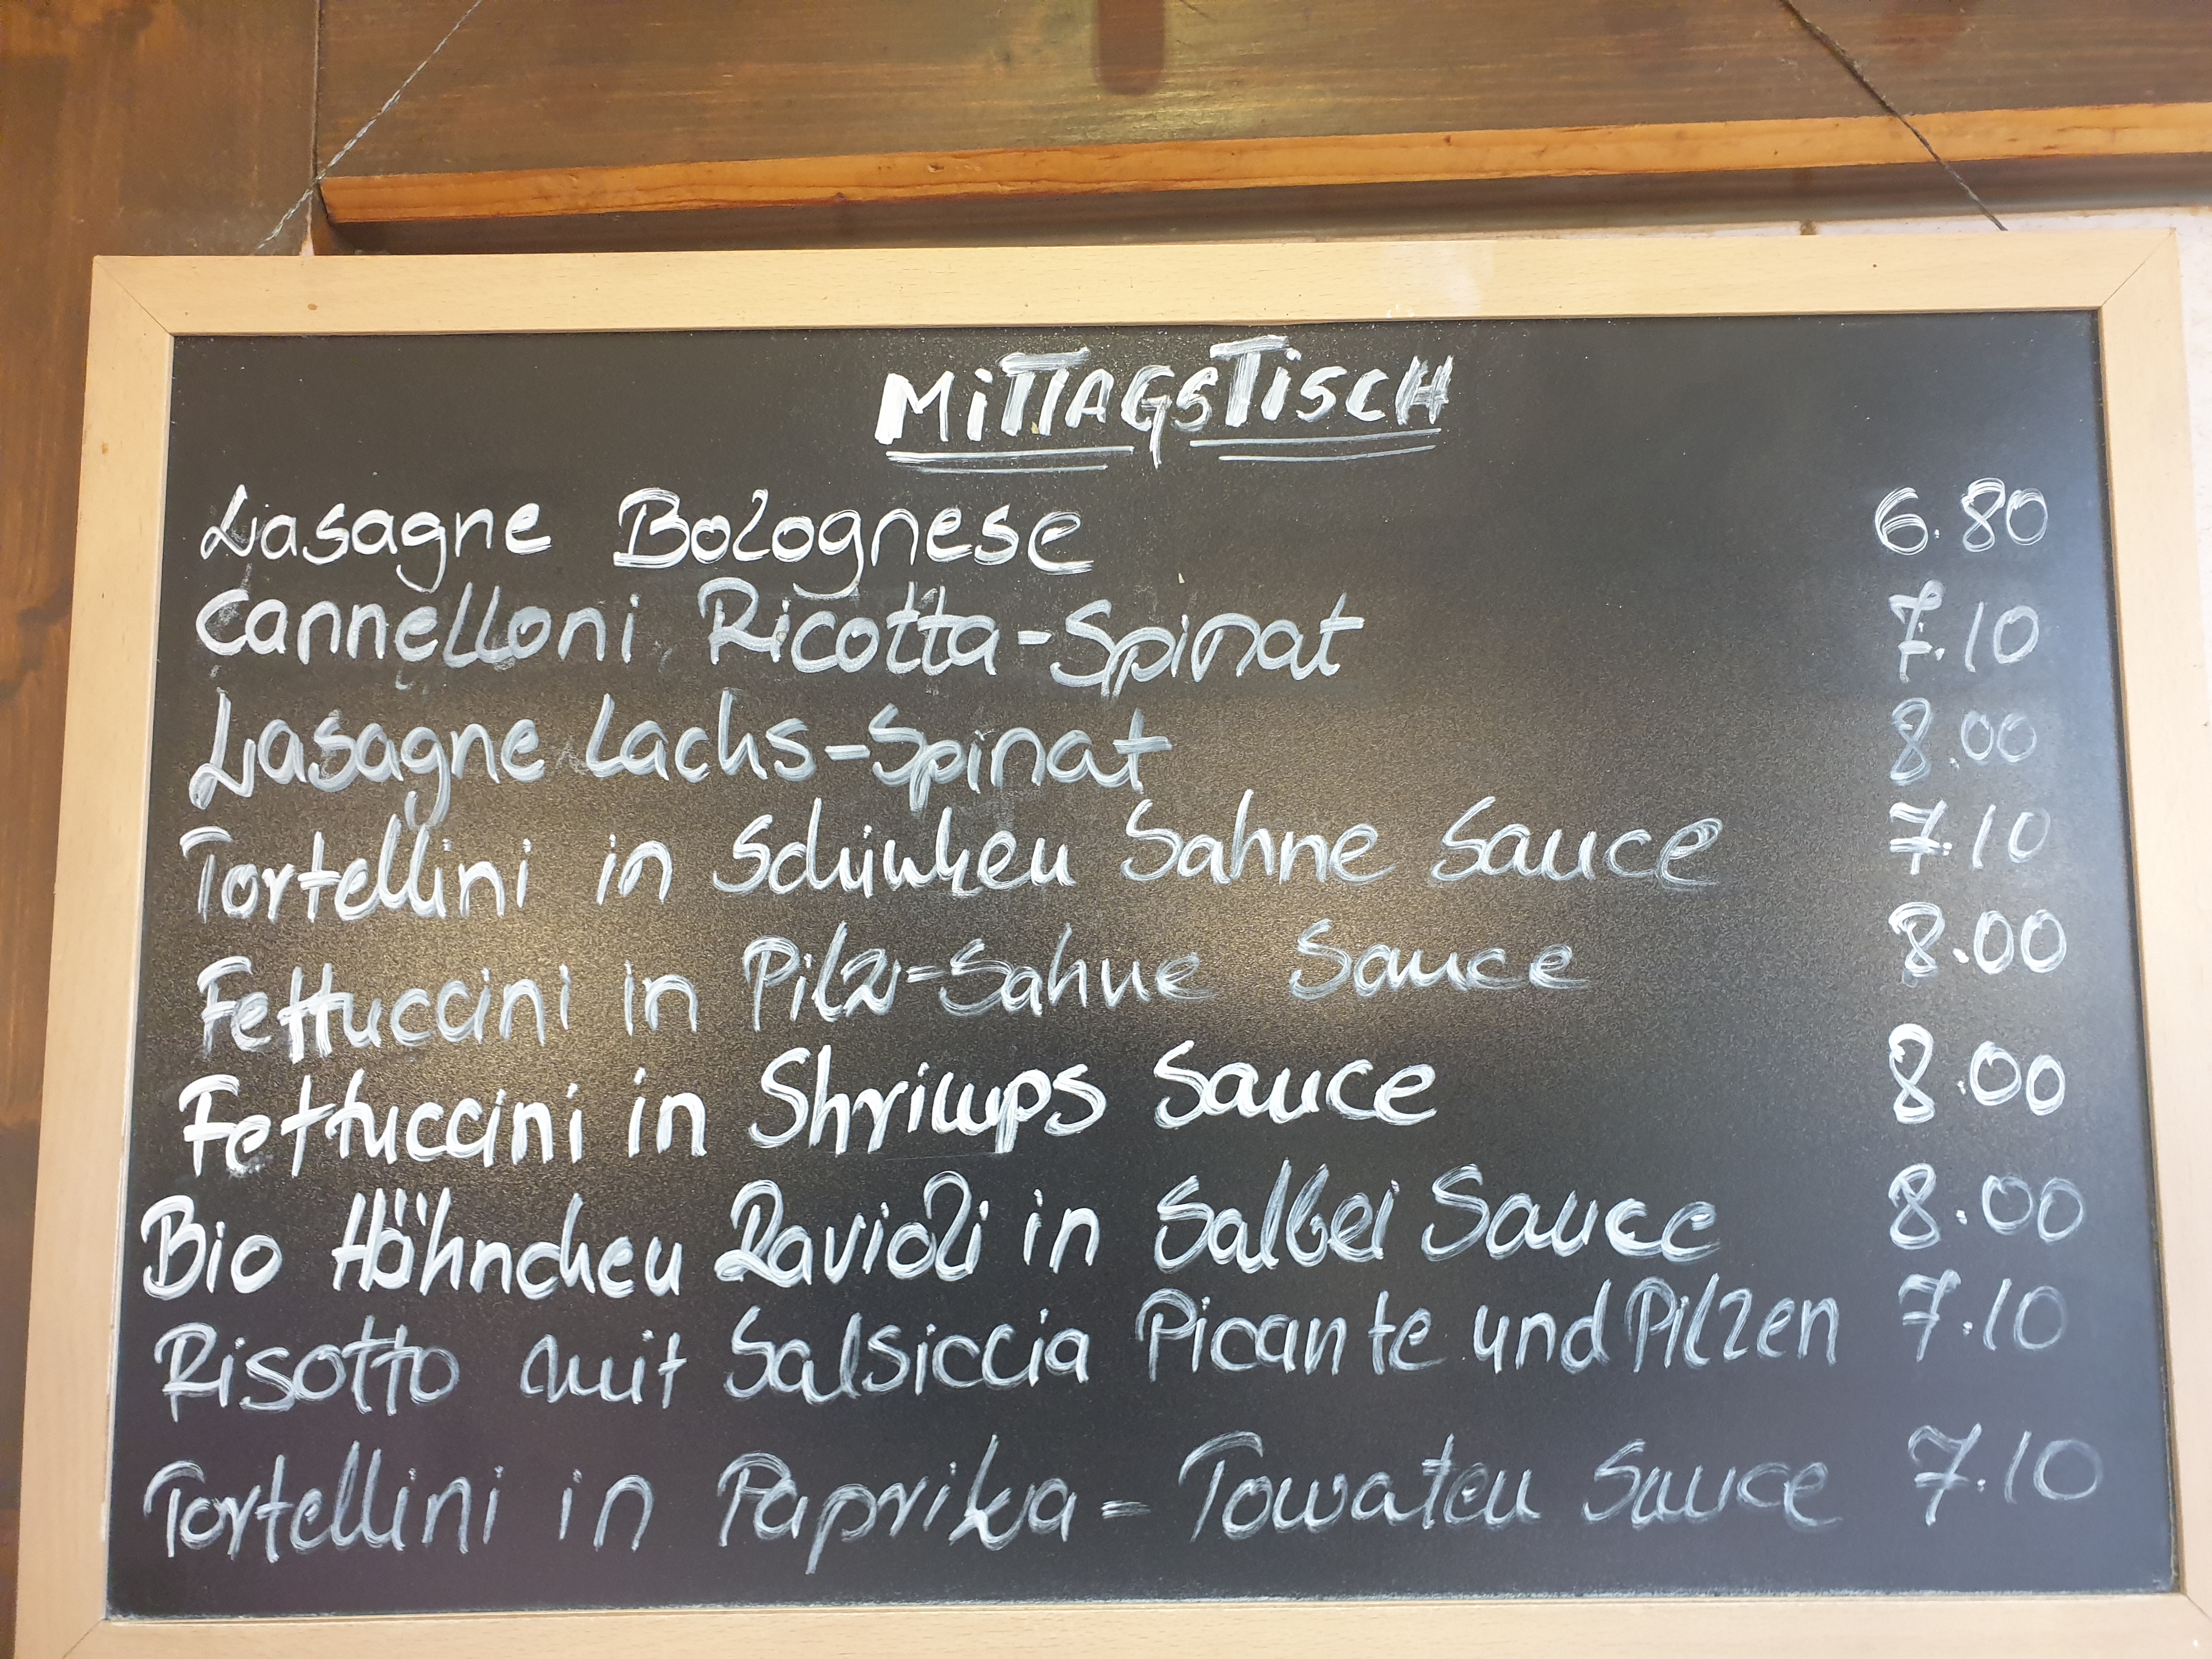 MiTTAGSTiSCH
Lasagne Bolognese 6.80
Cannelloni Ricotta-Spinat 7.10
Lasagne Lachs-Spinat 8.00
Tortellini in Schinken Sahne Sauce 7.10
Fettuccini in Pilz-Sahne Sauce 8.00
Fettuccini in Shrimps Sauce 8.00
Bio Hähnchen Ravioli in Salbei Sauce 8.00
Risotto mit Salsiccia Picante und Pilzen 7.10
Tortellini in Paprika-Tomaten Sauce 7.10